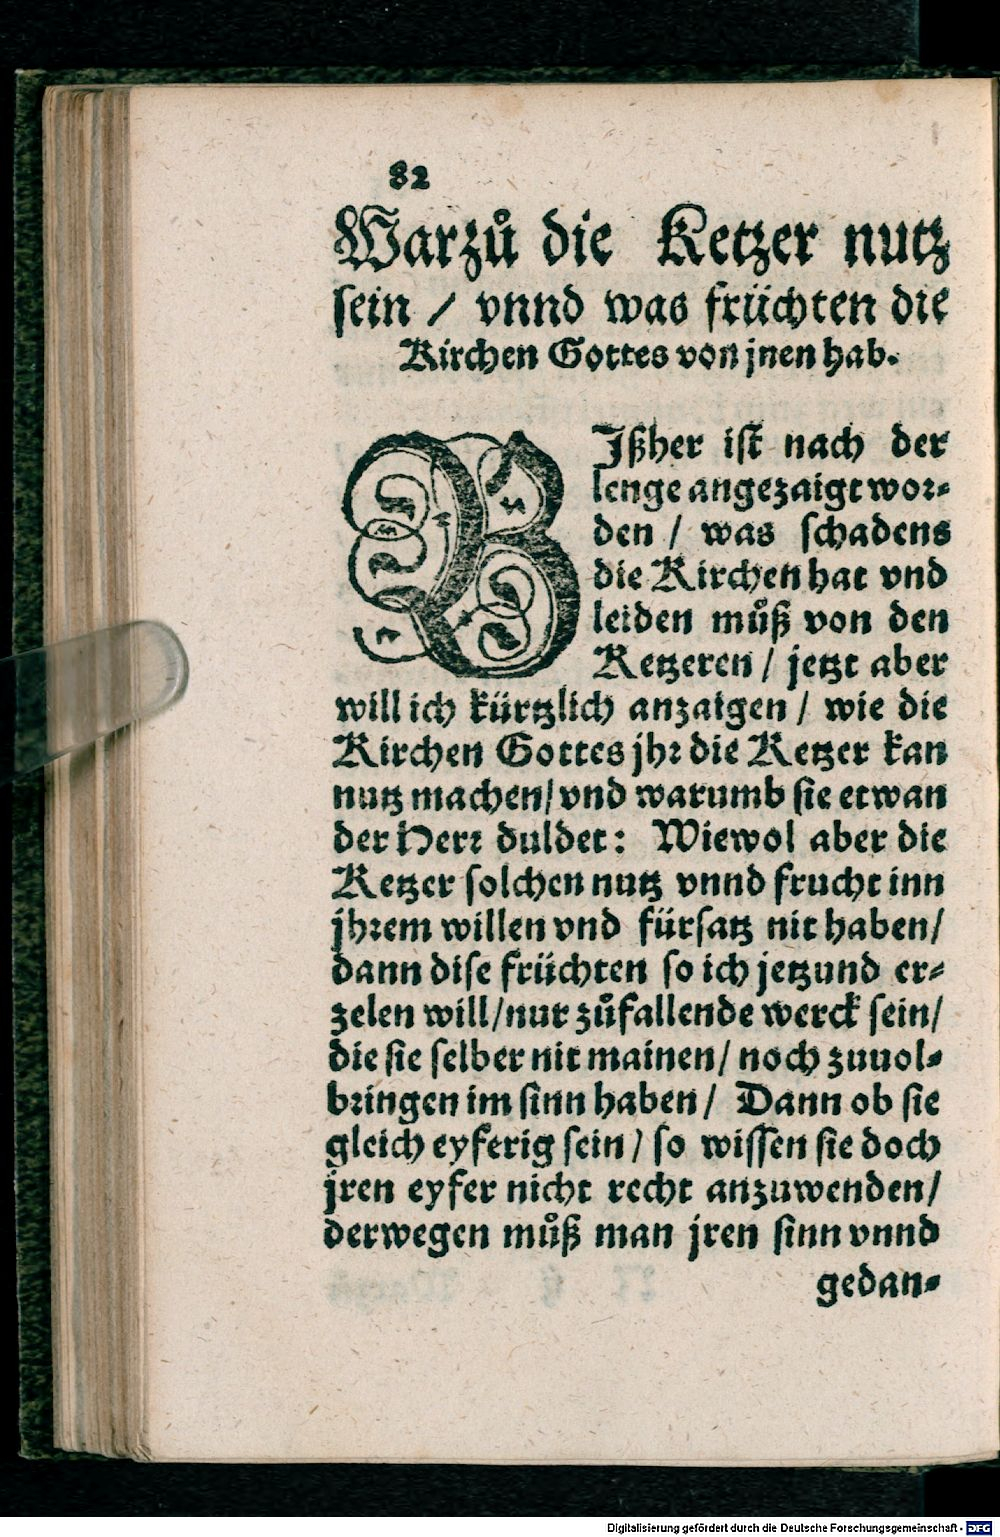 82
Warzuͦ die Ketzer nutz
sein / vnnd was früchten die
Kirchen Gottes von jnen hab.
BJßher ist nach der
lenge angezaigt wor⸗
den / was schadens
die Kirchen hat vnd
leiden muͦß von den
Ketzeren / jetzt aber
will ich kürtzlich anzaigen / wie die
Kirchen Gottes jhr die Ketzer kan
nutz machen/ vnd warumb sie etwan
der Herr duldet: Wiewol aber die
Ketzer solchen nutz vnnd frucht inn
jhrem willen vnd fürsatz nit haben/
dann dise früchten so ich jetzund er⸗
zelen will/nur zuͦfallende werck sein/
die sie selber nit mainen/ noch zuuol⸗
bringen im sinn haben/ Dann ob sie
gleich eyferig sein / so wissen sie doch
jren eyfer nicht recht anzuwenden/
derwegen muͦß man jren sinn vnnd
gedan⸗
Digitalisierung gefördert durch die Deutsche Forschungsgemeinschaft - DFG